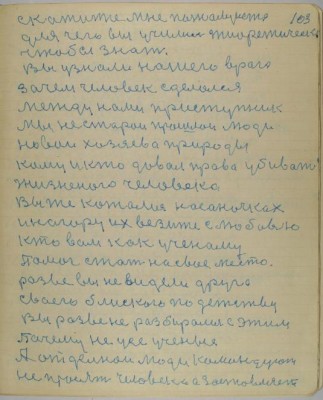 скажите мне пожалуюста 103
для чего вы училис теоретически
чтобы знат.
Вы узнали нашего врага
зачем человек сделался
между нами приступник
мы не старои прошлои люди
новаи хозяева природы
кому и кто довал права убивать
жизненого человека
Вы же каталис на саночках
и на гору их везите с любовью
кто вам как ученаму
памог стат на свое место.
разве вы не видели друга
своего блиского по детству
Вы разве не разбиралис с этим
Почему не уже ученые
А отделнои люди командуют
не проият человека а застовляет